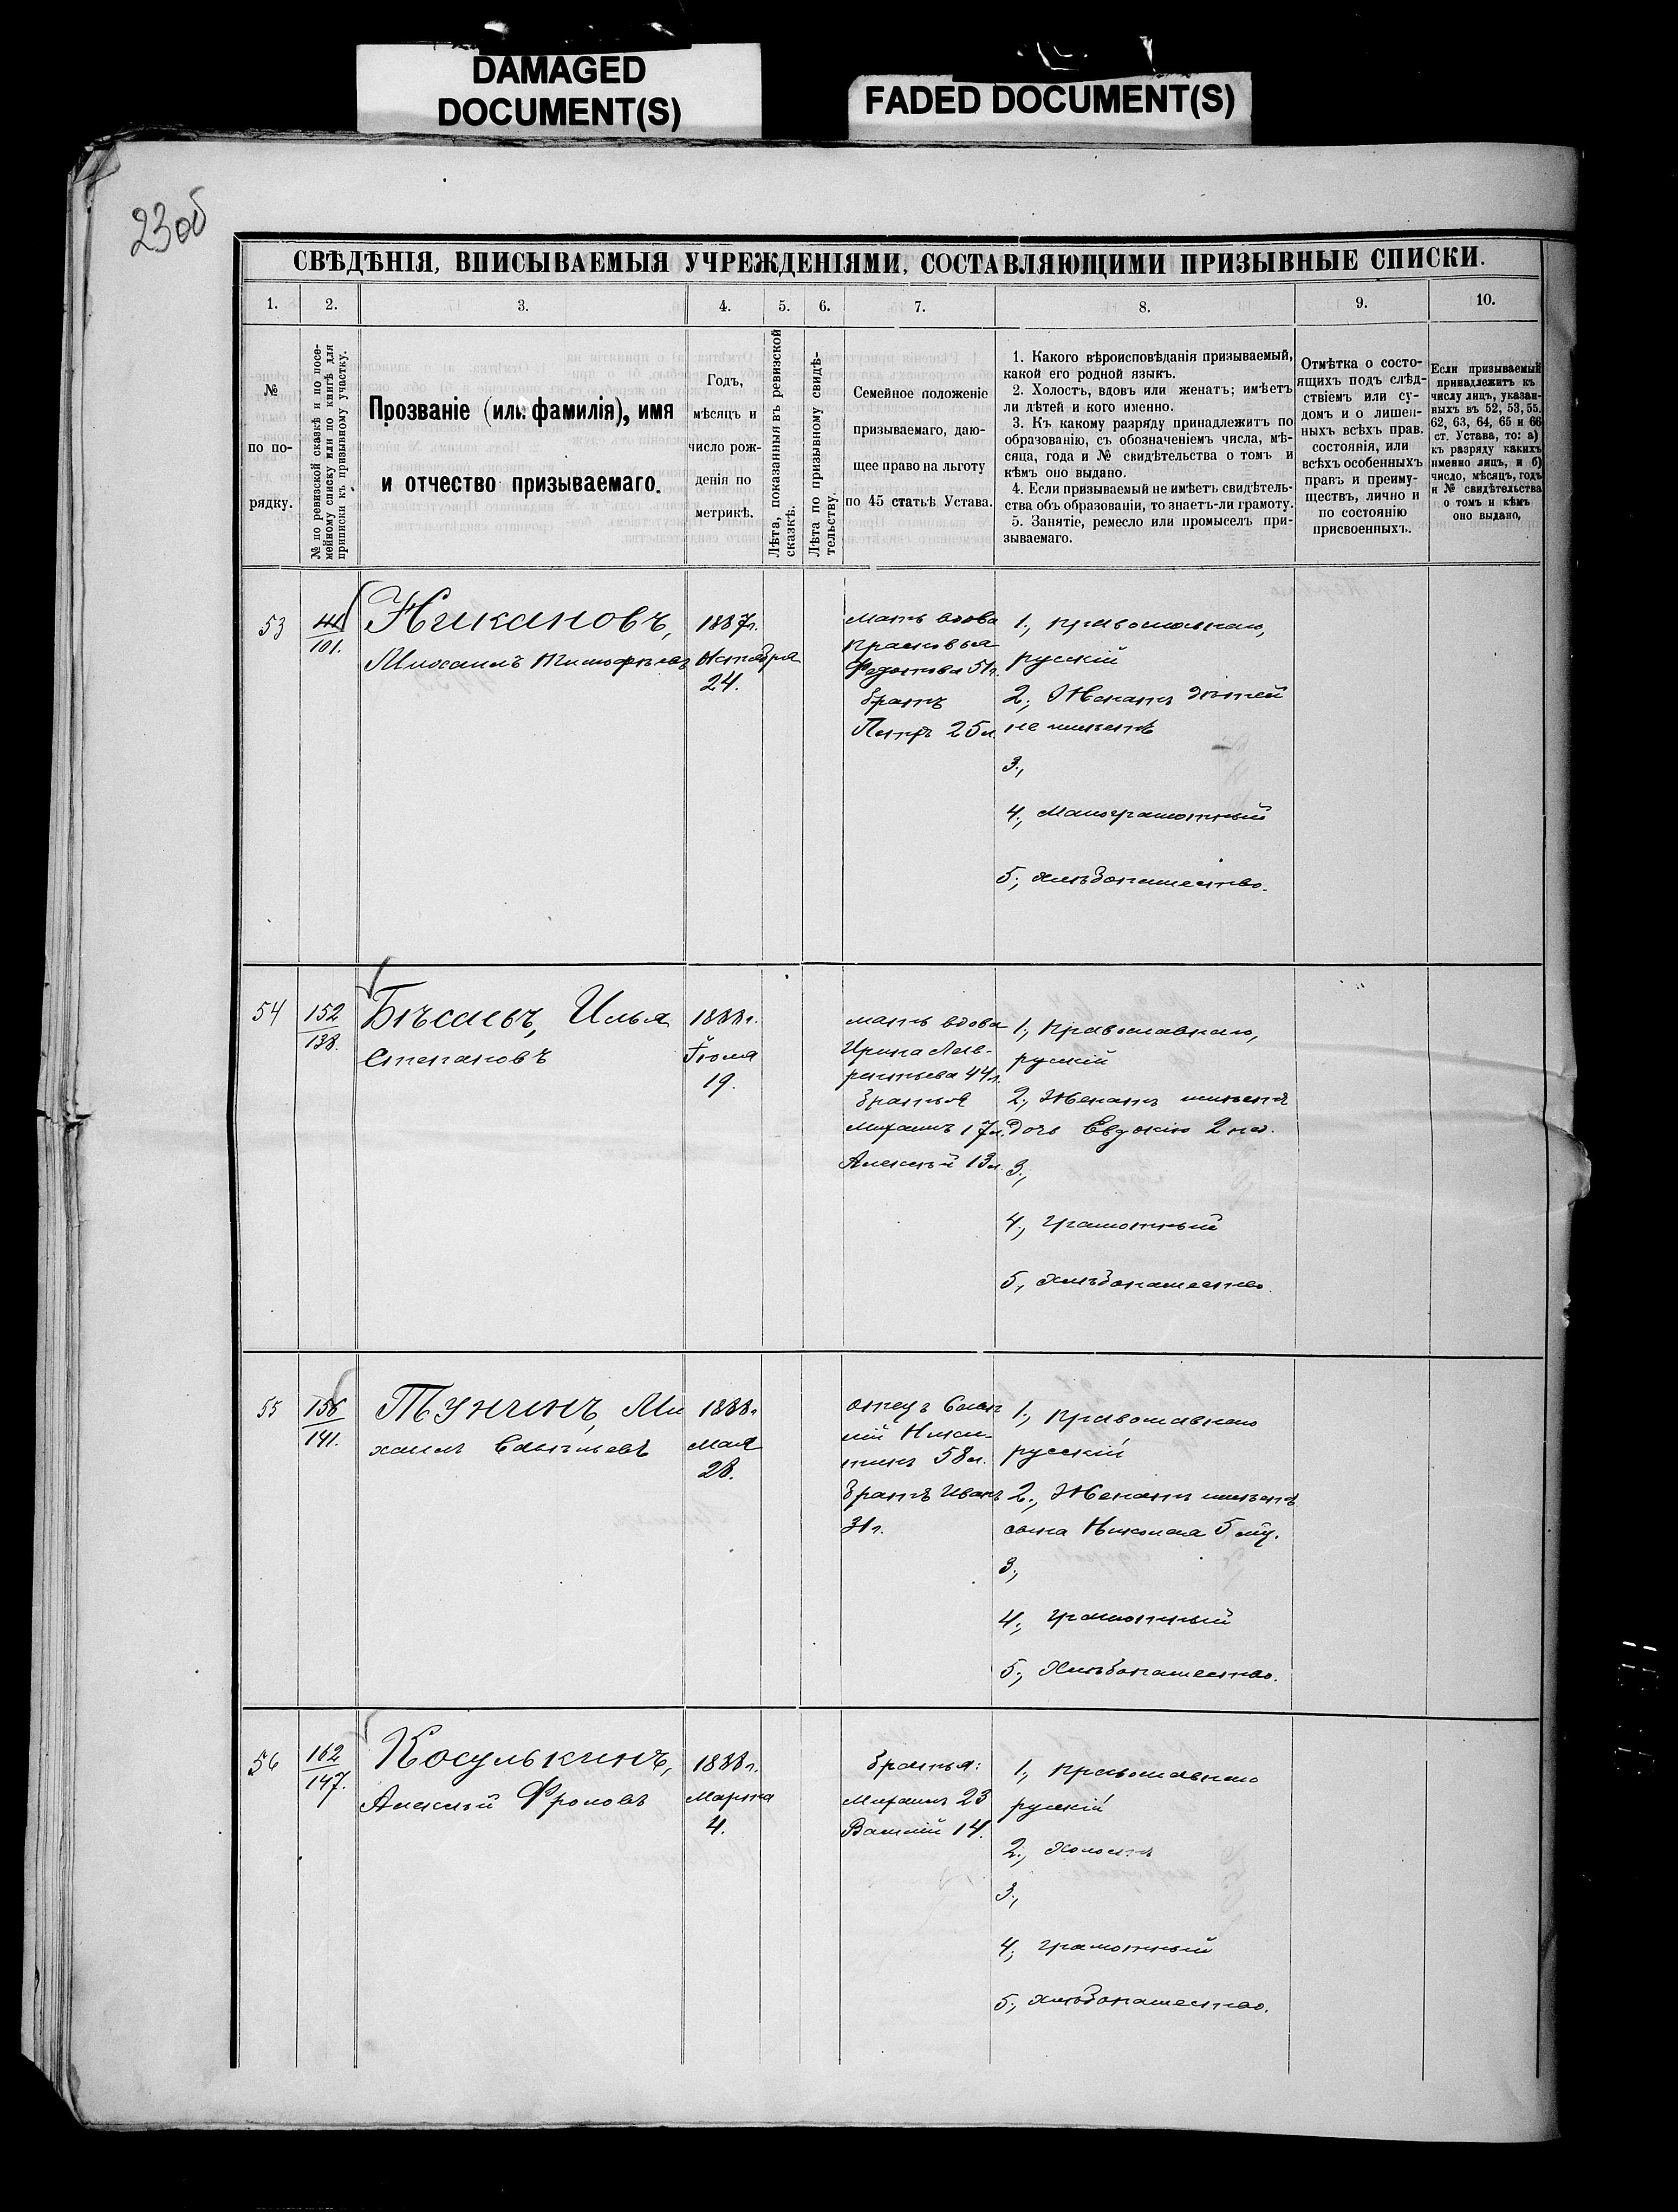 DAMAGED
DOCUMENT(S)
FADED DOCUMENT(S)
23об
СВѢДѢНІЯ, ВПИСЫВАЕМЫЯ УЧРЕЖДЕНІЯМИ, СОСТАВЛЯЮЩИМИ ПРИЗЫВНЫЕ СПИСКИ.
1. 2. 3. 4. 5. 6. 7. 8. 9. 10.
№
по по-
рядку.
№ по ревизской сказкѣ и по посе-
мейному списку или по книгѣ для
приписки къ призывному участку.
Прозваніе (или фамилія), имя
и отчество призываемаго.
Годъ,
мѣсяцъ и
число рож-
денія по
метрикѣ.
Лѣта, показанныя въ ревизской
сказкѣ.
Лѣта по призывному свидѣ-
тельству.
Семейное положеніе
призываемаго, даю-
щее право на льготу
по 45 статьѣ Устава.
1. Какого вѣроисповѣданія призываемый,
какой его родной языкъ.
2. Холостъ, вдовъ или женатъ; имѣетъ
ли дѣтей и кого именно.
3. Къ какому разряду принадлежитъ по
образованію, съ обозначеніемъ числа, мѣ-
сяца, года и № свидѣтельства о томъ и
кѣмъ оно выдано.
4. Если призываемый не имѣетъ свидѣтель-
ства объ образованіи, то знаетъ-ли грамоту.
5. Занятіе, ремесло или промыселъ при-
зываемаго.
Отмѣтка о состо-
ящихъ подъ слѣд-
ствіемъ или су-
домъ и о лишен-
ныхъ всѣхъ прав.
состоянія, или
всѣхъ особенныхъ
правъ и преиму-
ществъ, лично и
по состоянію
присвоенныхъ.
Если призываемый
принадлежитъ къ
числу лицъ, указан-
ныхъ въ 52, 53, 55.
62, 63, 64, 65 и 66
ст. Устава, то: а)
къ разряду какихъ
именно лицъ, и б)
число, мѣсяцъ, годъ
и № свидѣтельства
о томъ и кѣмъ
оно выдано,
53
101.
Никановъ,
Михаилъ Тимофѣевъ
1887г.
Октября
24.
Мать вдова
Прасковья
Федотова 51г.
братъ
Петръ 25л.
1., православнаго,
русскій
2., Женатъ дѣтей
не имѣетъ
3.,
4., Малограмотный
5., хлѣбопашество.
54
152
138.
Бѣсаевъ, Илья
Степановъ
1888г.
Іюля
19.
мать вдова
Ирина Лав-
рентьева 44л.
братья
Михаилъ 17л.
Алексѣй 13л.
1., Православнаго,
русскій
2., Женатъ имѣетъ
дочь Евдокію 2 нед.
3.,
4., грамотный
5., Хлѣбопашество.
55
156
141.
Тунгинъ, Ми
хаилъ Савельевъ
1888г
мая
28.
отецъ Савел
ій Ники-
тинъ 58л.
братъ Иванъ
31г.
1., православнаго
русскій
2., Женатъ имѣетъ
сына Николая 5 мѣ.
3.,
4., грамотный
5., Хлѣбопашество.
56
162
147.
Косулькинъ,
Алексѣй Фроловъ
1888г.
Марта
4.
братья:
Михаилъ 23
Василій 14.
1., православнаго
русскій
2., Холостъ
3.,
4., грамотный
5., хлѣбопашество.